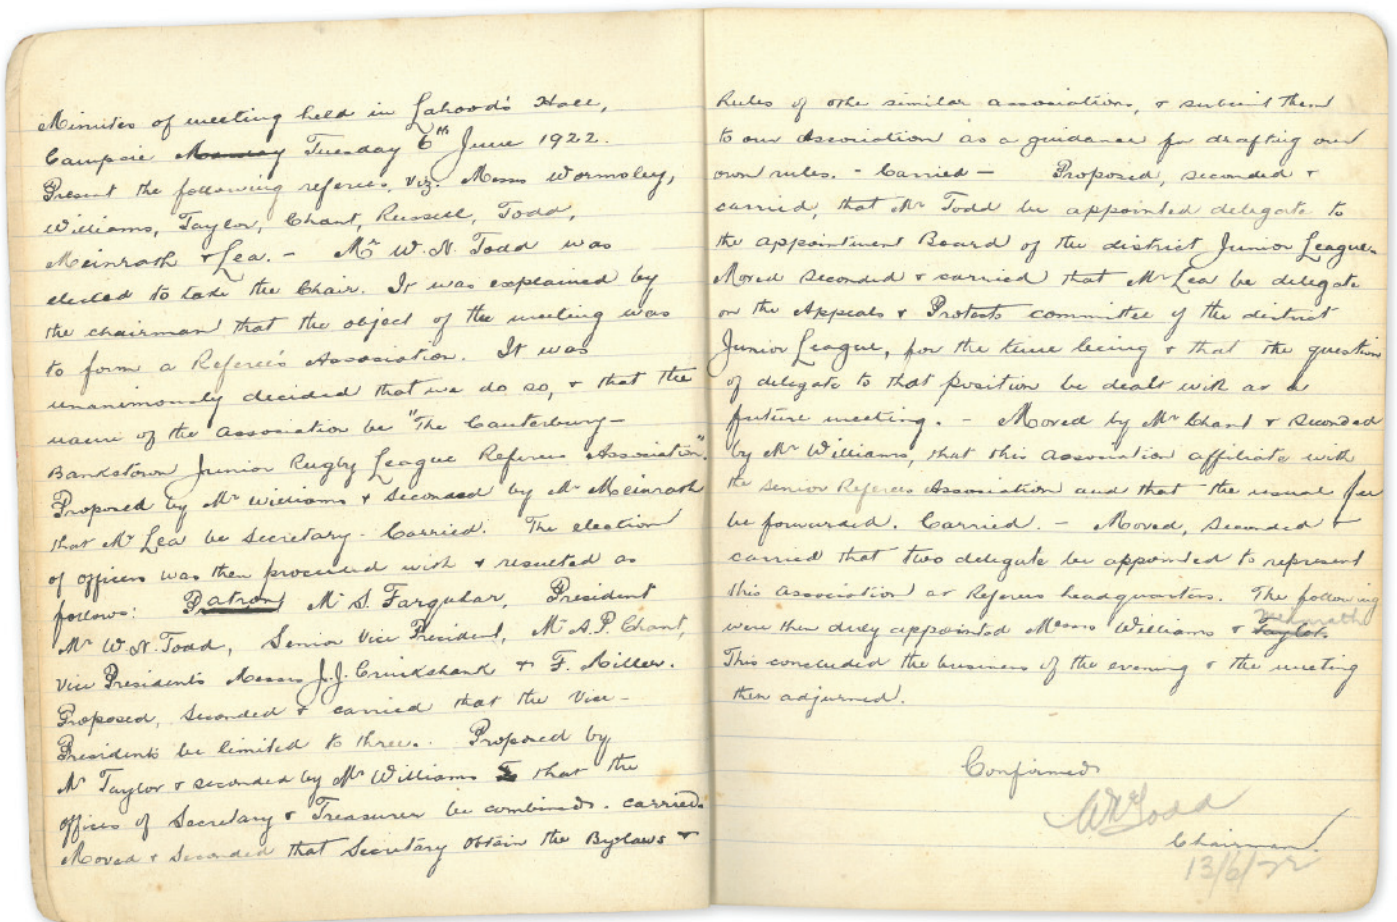 Minutes of meeting held in Lahood's Hall,
Campsie Monday Tuesday 6th June 1922.
Present the following referees, viz. Messrs Wormsley,
Williams, Taylor, Chant, Russell, Todd,
Meinrath & Lea. - Mr W. N. Todd was
elected to take the Chair. It was explained by
the chairman that the object of the meeting was
to form a Referee's Association. It was
unanimously decided that we do so, & that the
name of the association be "The Canterbury-
Bankstown Junior Rugby League Referees Association".
Proposed by Mr Williams & Seconded by Mr Meinrath
that Mr Lea be Secretary - Carried. The election
of officers was then proceeded with & resulted as
follows: Patron Mr S. Farquhar, President
Mr W. N. Todd, Senior Vice President, Mr A. P. Chant,
Vice Presidents Messrs J. J. Cruikshank & F. Miller.
Proposed, Seconded & carried that the Vice-
Presidents be limited to three. Proposed by
Mr Taylor & seconded by Mr Williams that the
offices of Secretary & Treasurer be combined. carried
Moved & Seconded that Secretary obtain the Bylaws &
Rules of othe similar associations, & submit them
to our Association as a guidance for drafting our
own rules. - Carried - Proposed, seconded &
carried, that Mr Todd be appointed delegate to
the appointment Board of the district Junior League.
Moved seconded & carried that Mr Lea be delegate
on the Appeals & Protests committee of the district
Junior League, for the time being & that the question
of delegate to that position be dealt with at a
future meeting. - Moved by Mr Chant & seconded
by Mr Williams, that this Association affiliate with
the senior Referees Association and that the usual fee
be forwarded. Carried. - Moved, seconded &
carried that two delegate be appointed to represent
this association at Referees headquarters. The following
were then duly appointed Messrs Williams & Taylor. Meinrath
This concluded the business of the evening & the meeting
then adjourned.
Confirmed
W N Todd
Chairman.
13/6/22